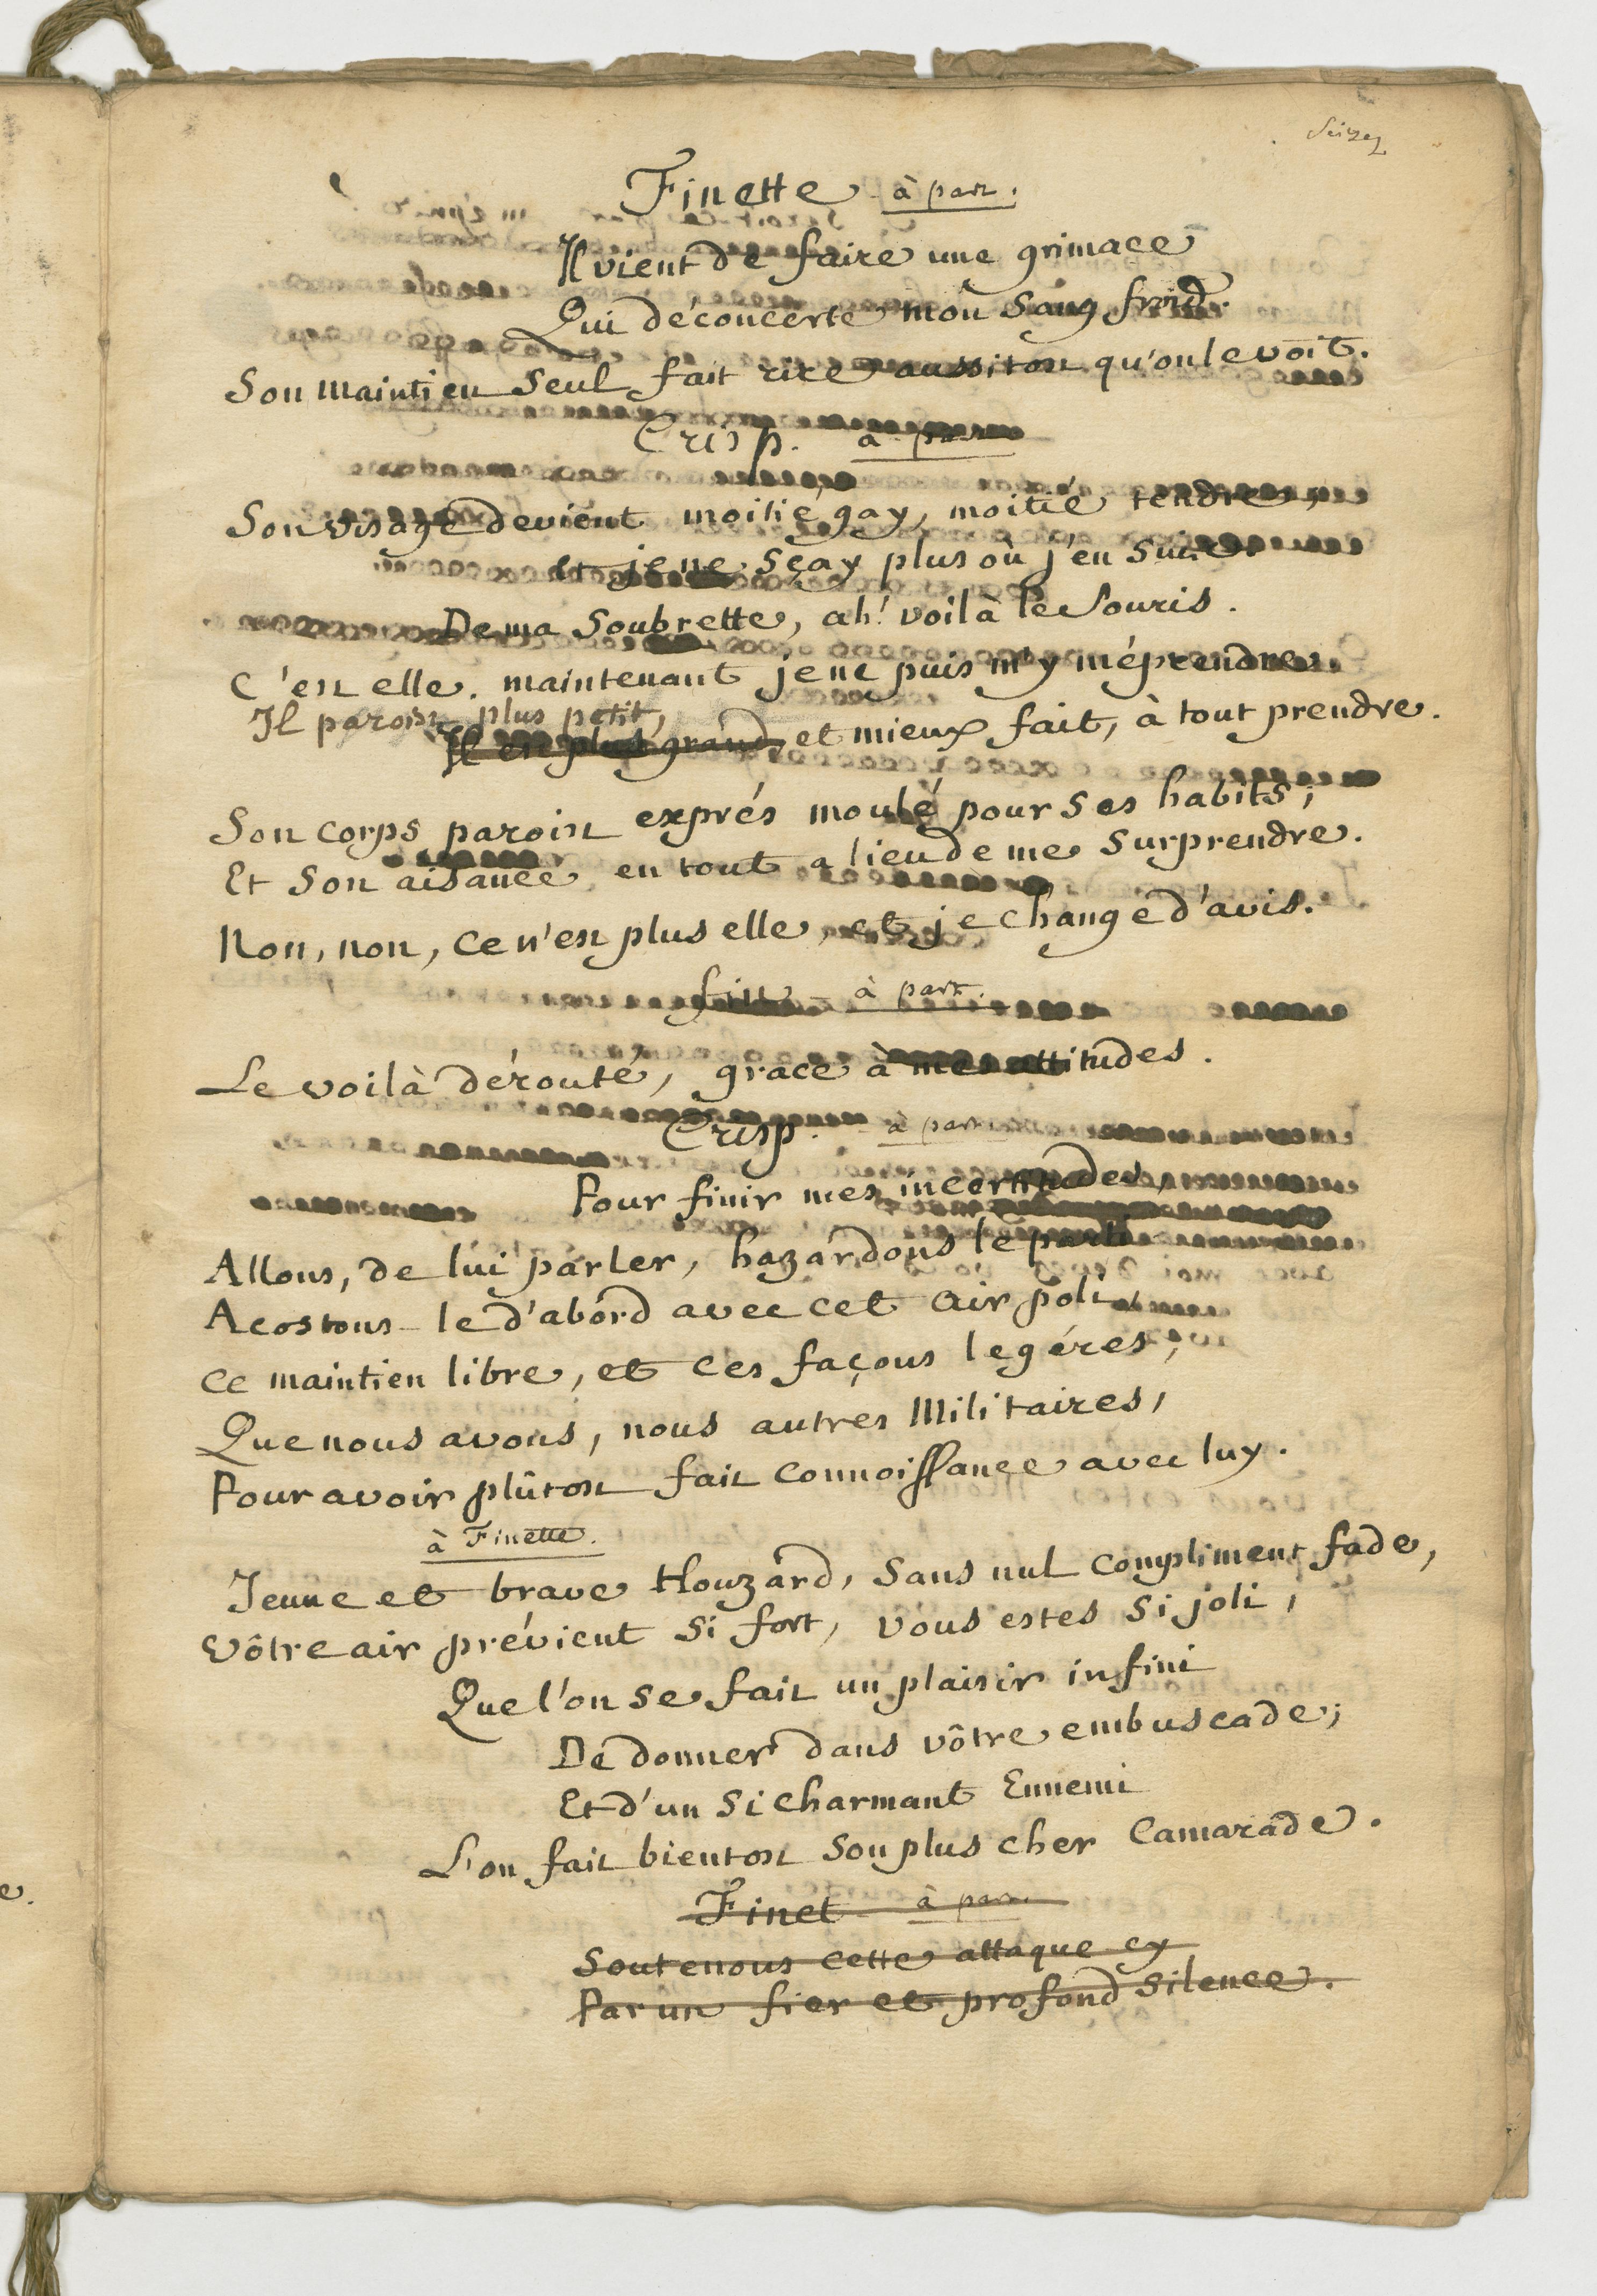 Seize
Finette à part.
Il vient de faire une grimace
Qui déconcerte mon sang froid.
Son maintien seul fait rire aussitost qu'on le voit.
Crisp. à part
Son visage devient moitié gay, moitié tendre,
et je ne sçay plus où j'en suis.
De ma Soubrette, ah! voilà le souris.
C'est elle. maintenant je ne puis m'y méprendre.
Il paroist plus petit,
Il est plus grand, et mieux fait, à tout prendre.
Son corps paroist exprés moulé pour ses habits;
Et son aisance en tout a lieu de me surprendre.
Non, non, ce n'est plus elle, et je change d'avis.
fin. à part.
Le voilà dérouté, grace à mes attitudes.
Crisp. à part
Pour finir mes incertitudes,
Allons, de lui parler, hazardons le parti
Acostons-le d'abord avec cet air poli,
Ce maintien libre, et ces façons legéres,
Que nous avons, nous autres Militaires,
Pour avoir plûtost fait connoissance avec luy.
à Finette.
Jeune et brave Houzard, sans nul compliment fade,
Vôtre air prévient si fort, vous estes si joli,
Que l'on se fait un plaisir infini
De donner dans vôtre embuscade;
Et d'un si charmant Ennemi
L'on fait bientost son plus cher Camarade.
Finet à part.
Soutenons cette attaque cy
Par un fier et profond silence.